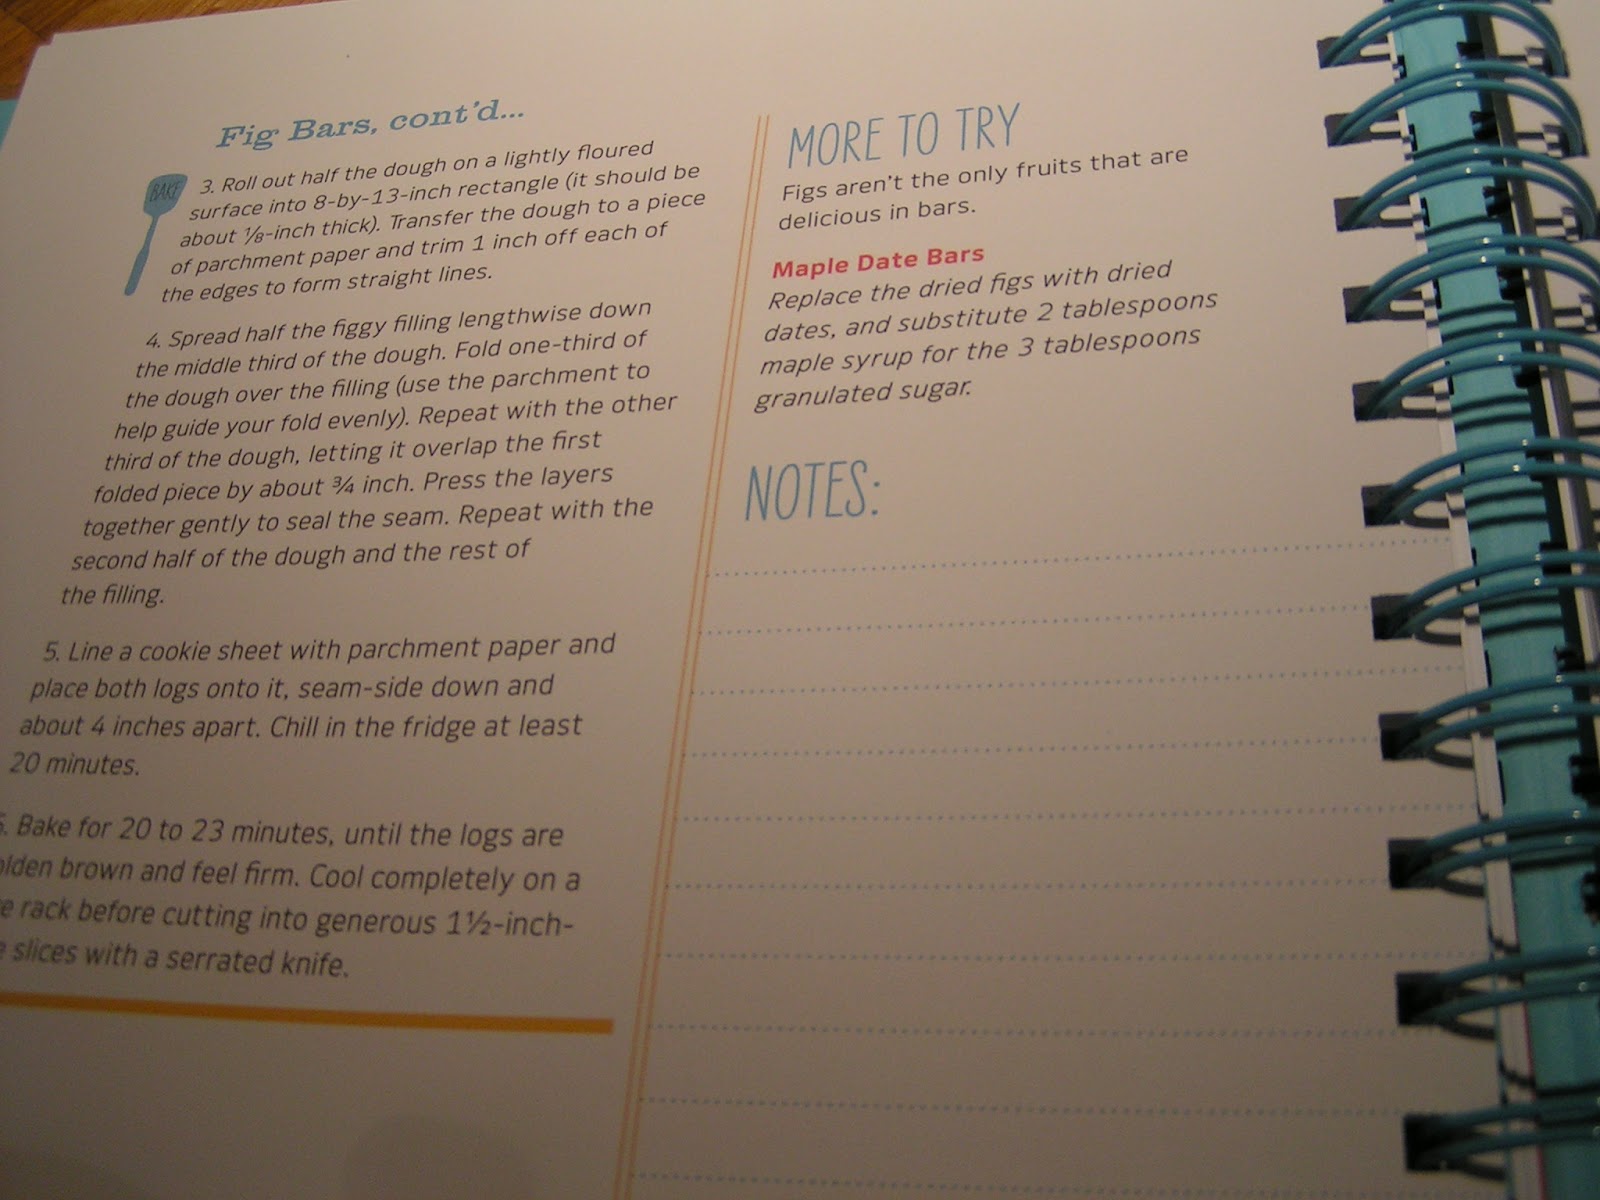 Fig Bars, cont'd...
BAKE
3. Roll out half the dough on a lightly floured
surface into 8-by-13-inch rectangle (it should be
about ⅛-inch thick). Transfer the dough to a piece
of parchment paper and trim 1 inch off each of
the edges to form straight lines.
4. Spread half the figgy filling lengthwise down
the middle third of the dough. Fold one-third of
the dough over the filling (use the parchment to
help guide your fold evenly). Repeat with the other
third of the dough, letting it overlap the first
folded piece by about ¾ inch. Press the layers
together gently to seal the seam. Repeat with the
second half of the dough and the rest of
the filling.
5. Line a cookie sheet with parchment paper and
place both logs onto it, seam-side down and
about 4 inches apart. Chill in the fridge at least
20 minutes.
Bake for 20 to 23 minutes, until the logs are
brown and feel firm. Cool completely on a
rack before cutting into generous 1½-inch-
slices with a serrated knife.
MORE TO TRY
Figs aren't the only fruits that are
delicious in bars.
Maple Date Bars
Replace the dried figs with dried
dates, and substitute 2 tablespoons
maple syrup for the 3 tablespoons
granulated sugar.
NOTES: